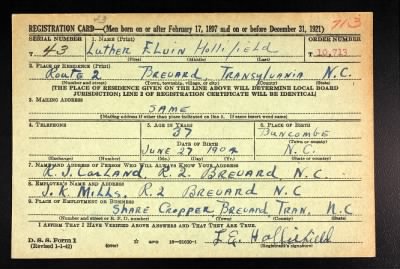 713
REGISTRATION CARD—(Men born on or after February 17, 1897 and on or before December 31, 1921)
SERIAL NUMBER 1. NAME (Print) ORDER NUMBER
T 43 Luther Elvin Hollifield T 10,713
(First) (Middle) (Last)
2. PLACE OF RESIDENCE (Print)
Route 2 Brevard, Transylvania N.C.
(Number and street) (Town, township, village, or city) (County) (State)
[THE PLACE OF RESIDENCE GIVEN ON THE LINE ABOVE WILL DETERMINE LOCAL BOARD
JURISDICTION; LINE 2 OF REGISTRATION CERTIFICATE WILL BE IDENTICAL]
3. MAILING ADDRESS
SAME
[Mailing address if other than place indicated on line 2. If same insert word same]
4. TELEPHONE 5. AGE IN YEARS 6. PLACE OF BIRTH
37 Buncombe
DATE OF BIRTH (Town or county)
June 27 1904 N.C.
(Exchange) (Number) (Mo.) (Day) (Yr.) (State or country)
7. NAME AND ADDRESS OF PERSON WHO WILL ALWAYS KNOW YOUR ADDRESS
R. 2. Brevard, N.C.
8. EMPLOYER'S NAME AND ADDRESS
J. K. Mills. R.2 Brevard N.C
9. PLACE OF EMPLOYMENT OR BUSINESS
Share Cropper Brevard Tran. N.C
(Number and street or R. F. D. number) (Town) (County) (State)
I AFFIRM THAT I HAVE VERIFIED ABOVE ANSWERS AND THAT THEY ARE TRUE.
D. S. S. Form 1 L.E. Hollifield
(Revised 1-1-42) (over) (Registrant's signature)